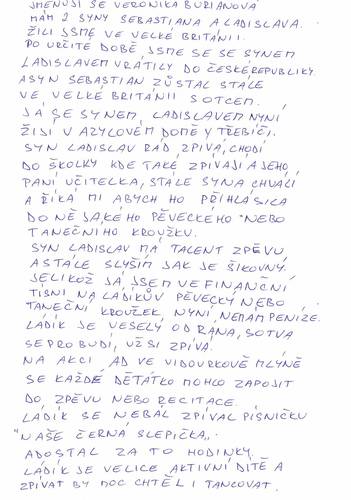 JMENUJI SE VERONIKA BURIANOVÁ
MÁM 2 SYNY SEBASTIANA A LADISLAVA.
ŽILI JSME VE VELKÉ BRITÁNII.
PO URČITÉ DOBĚ JSME SE SE SYNEM
LADISLAVEM VRÁTILY DO ČESKÉ REPUBLIKY
A SYN SEBASTIAN ZŮSTAL STÁLE
VE VELKÉ BRITÁNII S OTCEM.
JÁ SE SYNEM, LADISLAVEM NYNÍ
ŽIJI V AZYLOVÉM DOMĚ V TŘEBÍČI.
SYN LADISLAV RÁD ZPÍVÁ, CHODÍ
DO ŠKOLKY KDE TAKÉ ZPÍVAJÍ A JEHO
PANÍ UČITELKA, STÁLE SYNA CHVÁLÍ
A ŘÍKÁ MI ABYCH HO PŘIHLÁSILA
DO NĚJAKÉHO PĚVECKÉHO NEBO
TANEČNIHO KROUŽKU.
SYN LADISLAV MÁ TALENT ZPĚVU
A STÁLE SLYŠÍM JAK JE ŠIKOVNÝ.
JELIKOŽ JÁ JSEM VE FINANČNÍ
TÍSNI NA LÁDÍKŮV PĚVECKÝ NEBO
TANEČNÍ KROUŽEK, NYNÍ, NEMÁM PENÍZE.
LÁDÍK JE VESELÝ OD RÁNA, SOTVA
SE PROBUDI, UŽ SI ZPÍVÁ.
NA AKCI AD VE VIDOURKOVĚ MLÝNĚ
SE KAŽDÉ DĚŤÁTKO MOHLO ZAPOJIT
DO ZPĚVU NEBO RECITACE.
LÁDÍK SE NEBÁL ZPÍVAL PÍSNIČKU
"NAŠE ČERNÁ SLEPIČKA„
A DOSTAL ZA TO HODINKY.
LÁDÍK JE VELICE AKTIVNÍ DÍTĚ A
ZPÍVAT BY MOC CHTĚL I TANCOVAT.